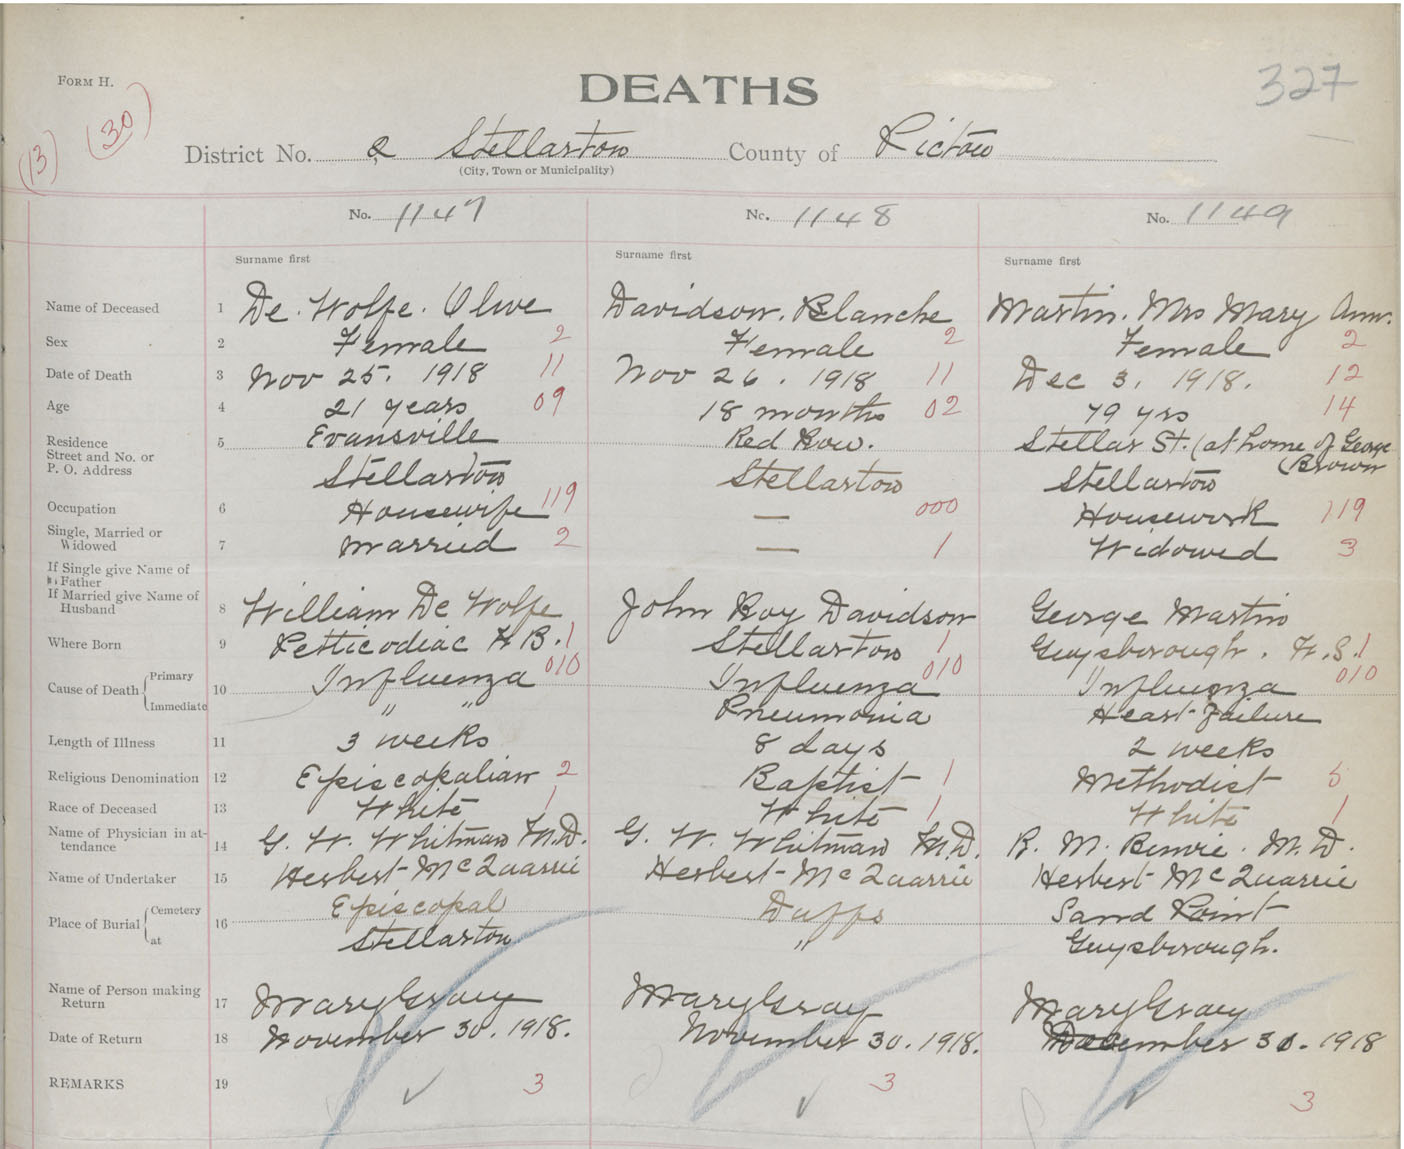 FORM H.
DEATHS
327
(13) (30)
District No. 2 Stellarton County of Pictou
(City, Town or Municipality)
No. 1147 No. 1148 No. 1149
Surname first Surname first Surname first
Name of Deceased 1 De. Wolfe. Olive Davidson. Blanche Martin. Mrs Mary Ann.
Sex 2 Female 2 Female 2 Female 2
Date of Death 3 Nov 25. 1918 11 Nov 26. 1918 11 Dec 3. 1918. 12
Age 4 21 years 09 18 months 02 79 yrs 14
Residence 5 Evansville Red Row. Stellar St. (at home of George
Street and No. or (Brown
P. O. Address Stellarton Stellarton Stellarton
Occupation 6 Housewife 119 — 000 Housework 119
Single, Married or
Widowed 7 Married 2 — 1 Widowed 3
If Single give Name of
Father
If Married give Name of
Husband 8 William De Wolfe John Roy Davidson George Martin
Where Born 9 Petticodiac N B. 1 Stellarton 1 Guysborough. N. S. 1
Cause of Death { Primary 10 Influenza 010 Influenza 010 Influenza 010
Immediate " " Pneumonia Heart-Failure
Length of Illness 11 3 weeks 8 days 2 weeks
Religious Denomination 12 Episcopalian 2 Baptist 1 Methodist 5
Race of Deceased 13 White 1 White 1 White 1
Name of Physician in at-
tendance 14 G. W. Whitman M.D. G. W. Whitman M.D. R. M. Benvie. M.D.
Name of Undertaker 15 Herbert McQuarrie Herbert McQuarrie Herbert McQuarrie
Place of Burial { Cemetery 16 Episcopal Duffs Sand Point
at Stellarton " Guysborough.
Name of Person making
Return 17 Mary Gray Mary Gray Mary Gray
Date of Return 18 November 30. 1918. November 30. 1918. December 30. 1918
REMARKS 19 3 3 3